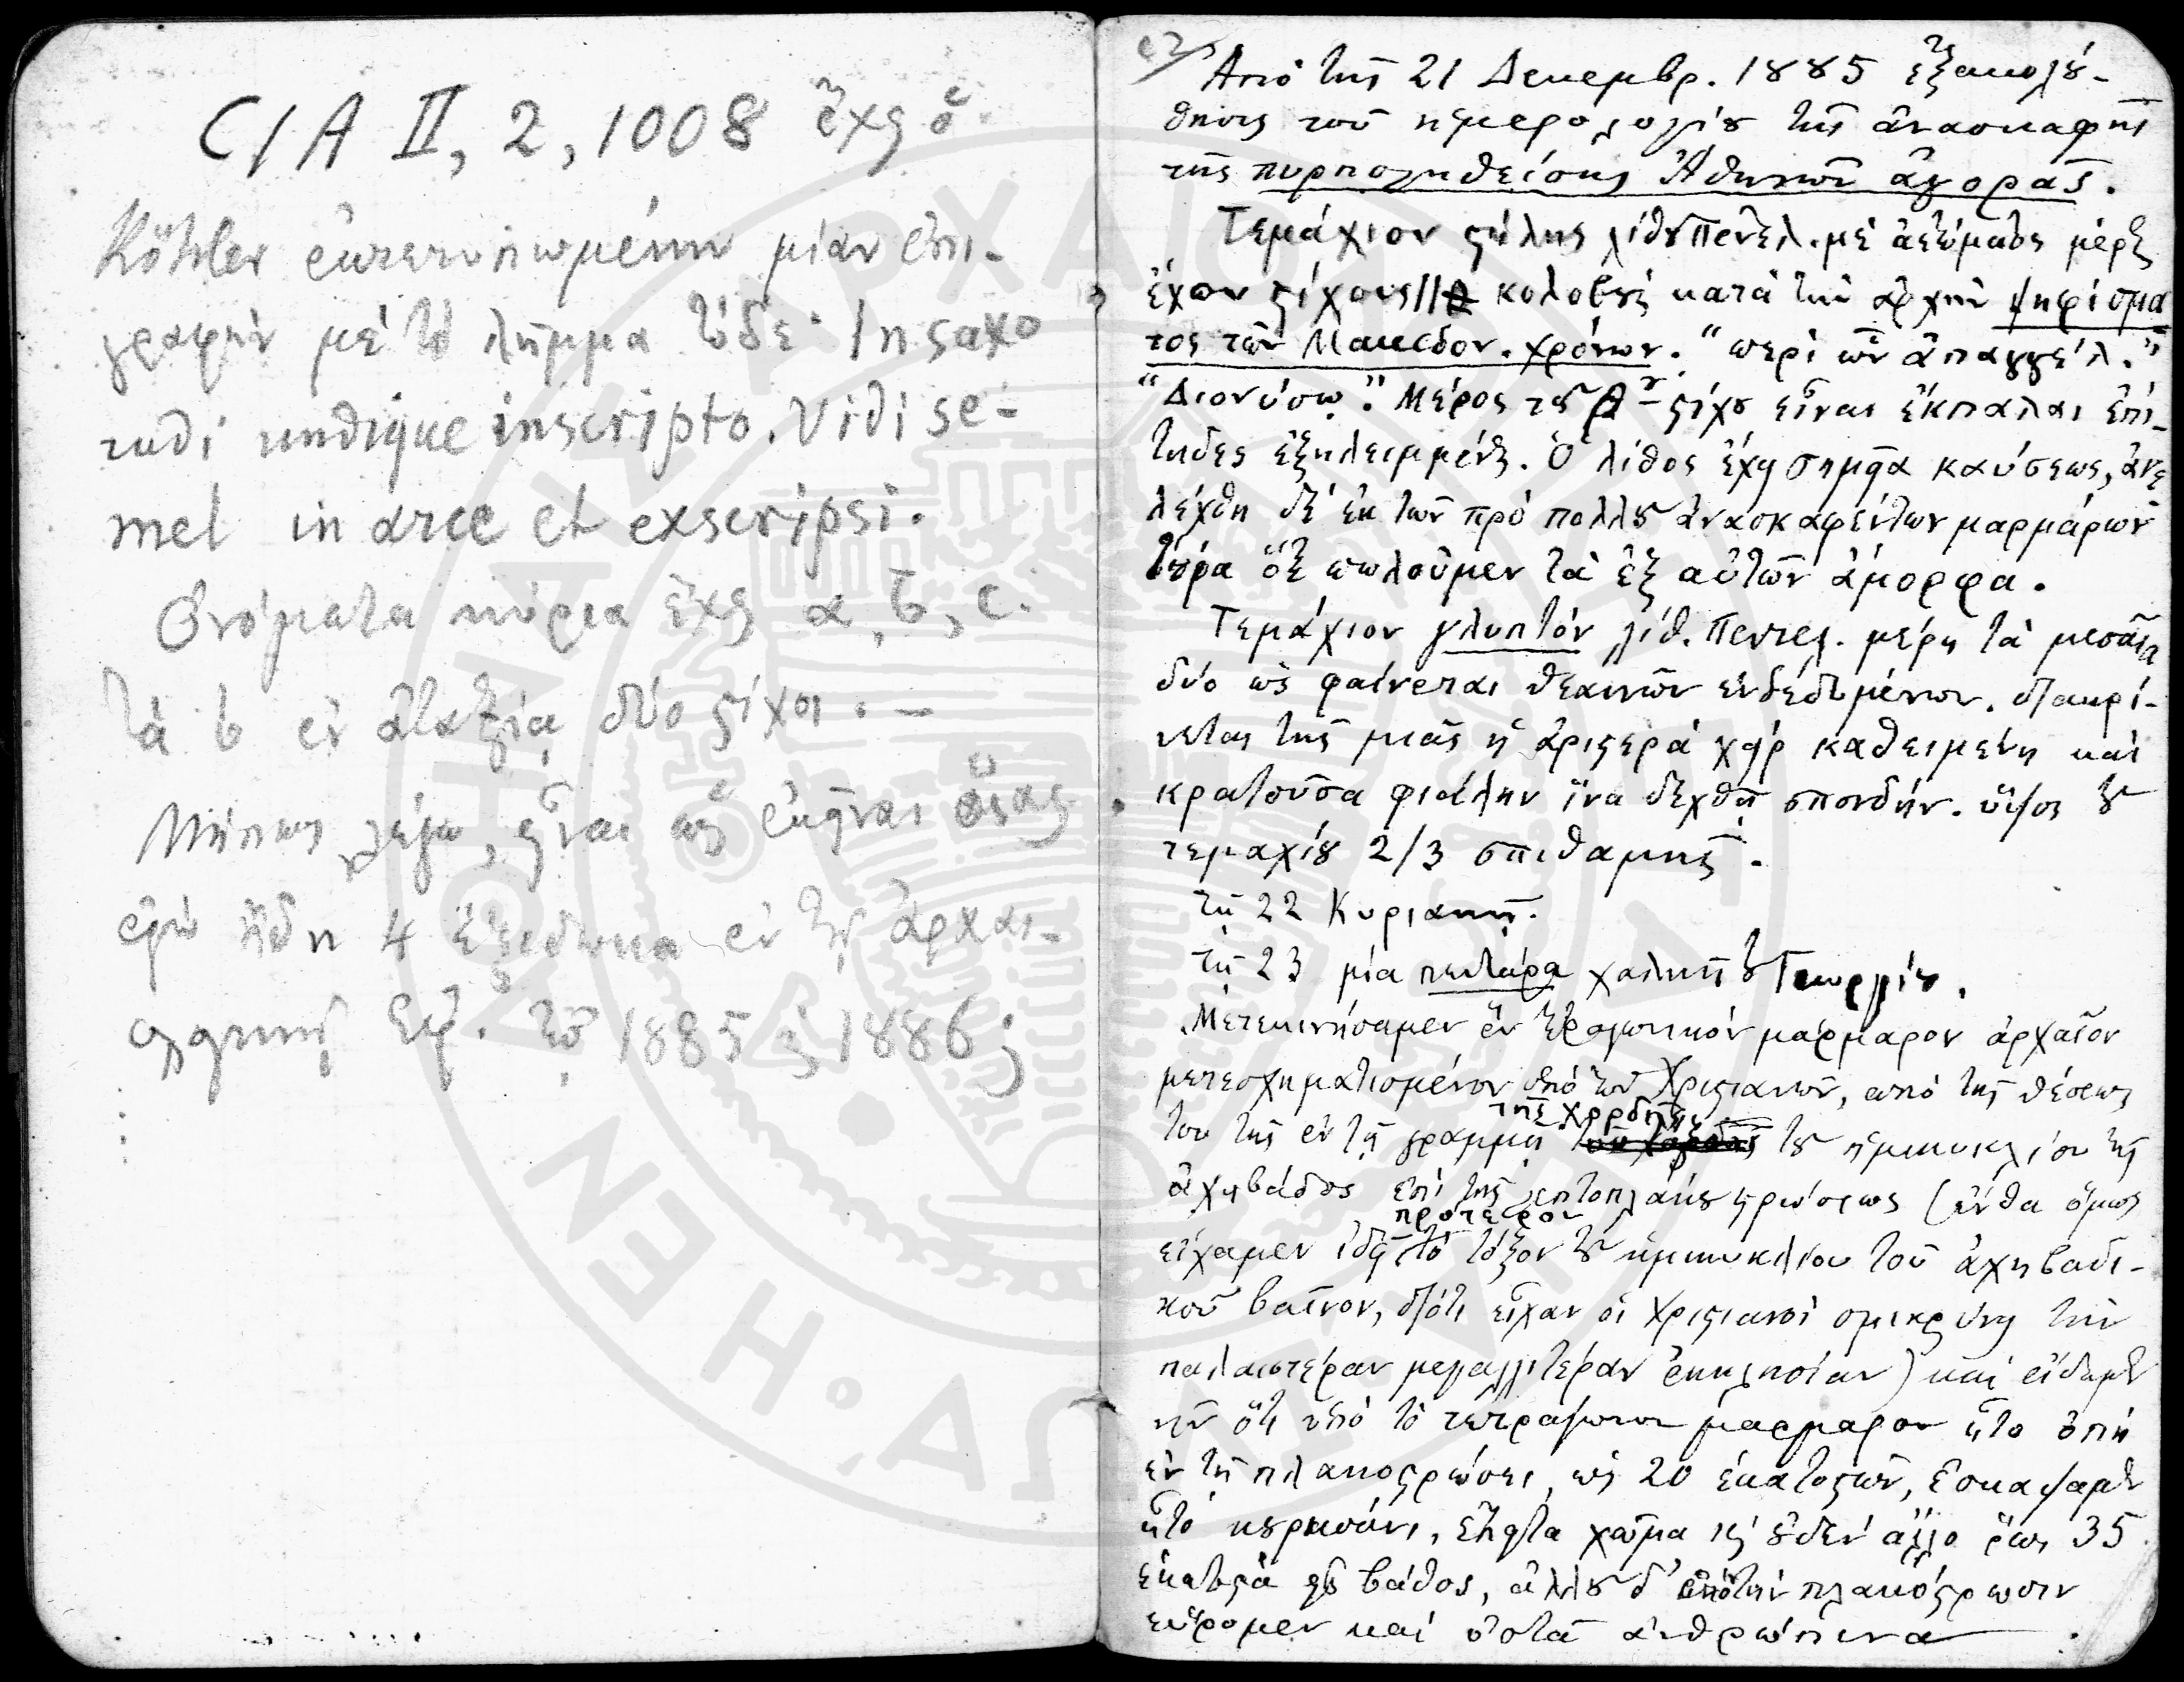 CIA II, 2, 1008 ἔχει ὁ
Köhler ἐκτετυπωμένην μίαν ἐπι-
γραφὴν μὲ τὸ λῆμμα τόδε· In saxo
rudi undique inscripto. Vidi se-
mel in arce et exscripsi.
Ὀνόματα κύρια ἔχει a, b, c.
τὰ b ἐν ἀταξίᾳ δύο στίχοι. –
Μήπως, λέγω, εἶναι ὡς ἐκεῖναι
ἐγὼ ἤδη 4 ἐξέδωκα ἐν τῇ ἀρχαι-
ολογικῇ Ἐφ. τοῦ 1885 καὶ 1886;
Ἀπὸ τῆς 21 Δεκεμβρ. 1885 ἐξακολού-
θησις τοῦ ἡμερολογίου τῆς ἀνασκαφῆς
τῆς πυρποληθείσης Ἀθηνῶν ἀγορᾶς.
Τεμάχιον στήλης λίθου Πεντελ. μὲ ἀετώματος μέρος
ἔχον στίχους 11 κολοβοὺς κατὰ τὴν ἀρχὴν ψηφίσμα
τος τῶν Μακεδον. χρόνων. "περὶ ὧν ἀπαγγέλ."
"Διονύσῳ." Μέρος τοῦ στίχου εἶναι ἔκπαλαι ἐπί-
τηδες ἐξηλειμμένον. Ὁ λίθος ἔχει σημεῖα καύσεως, ἀνε
λέχθη δὲ ἐκ τῶν πρὸ πολλοῦ ἀνασκαφέντων μαρμάρων
τώρα ὅτε πωλοῦμεν τὰ ἐξ αὐτῶν ἄμορφα.
Τεμάχιον γλυπτὸν λίθ. Πεντελ. μέρη τὰ μεσαῖα
δύο ὡς φαίνεται θεαινῶν ἐνδεδυμένων. διακρί-
νεται τῆς μιᾶς ἡ ἀριστερὰ χεὶρ καθειμένη καὶ
κρατοῦσα φιάλην ἵνα δεχθῇ σπονδήν. ὕψος τοῦ
τεμαχίου 2/3 σπιθαμῆς.
τῇ 22 Κυριακῇ.
τῇ 23 μία πεντάρα χαλκῆ τοῦ Γεωργίου.
Μετεκινήσαμεν ἓν μάρμαρον ἀρχαῖον
μετεσχηματισμένον ὑπὸ τῶν Χριστιανῶν, ἀπὸ τῆς θέσεως
του τῆς ἐν τῇ γραμμῇ τῆς χορδῆς τοῦ ἡμικυκλίου τῆς
ἀχιβάδος ἐπὶ τῆς στρώσεως (ἔνθα ὅμως
εἴχαμεν ἰδῇ πρότερον τὸ τόξον τοῦ ἡμικυκλίου τοῦ ἀχηβαδι-
κοῦ βαῖνον, διότι εἶχαν οἱ Χριστιανοὶ σμικρύνῃ τὴν
παλαιοτέραν μεγαλλιτέραν ἐκκλησίαν) καὶ εἴδαμεν
ὅτι ὑπὸ τὸ τετράγωνον μάρμαρον ἦτο ὀπὴ
ἐν τῇ πλακοστρώσει, ὡς 20 ἑκατοστῶν, ἐσκάψαμεν
ἦτο κουρασάνι, ἔπειτα χῶμα καὶ οὐδὲν ἄλλο ἕως 35
ἑκατοστὰ βάθος, ἀλλοῦ δ' ὑπὸ τὴν πλακόστρωσιν
εὕρομεν καὶ ὀστᾶ ἀνθρώπινα.